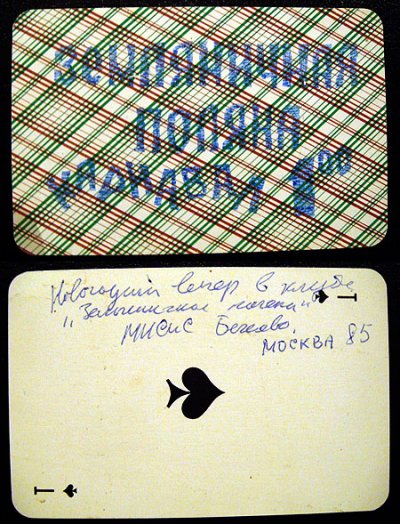 ЗЕМЛЯНИЧНАЯ
ПОЛЯНА
КАРНАВАЛ 1 00
Новогодний вечер в клубе
"Земляничная поляна"
МИСиС Беляево.
МОСКВА 85